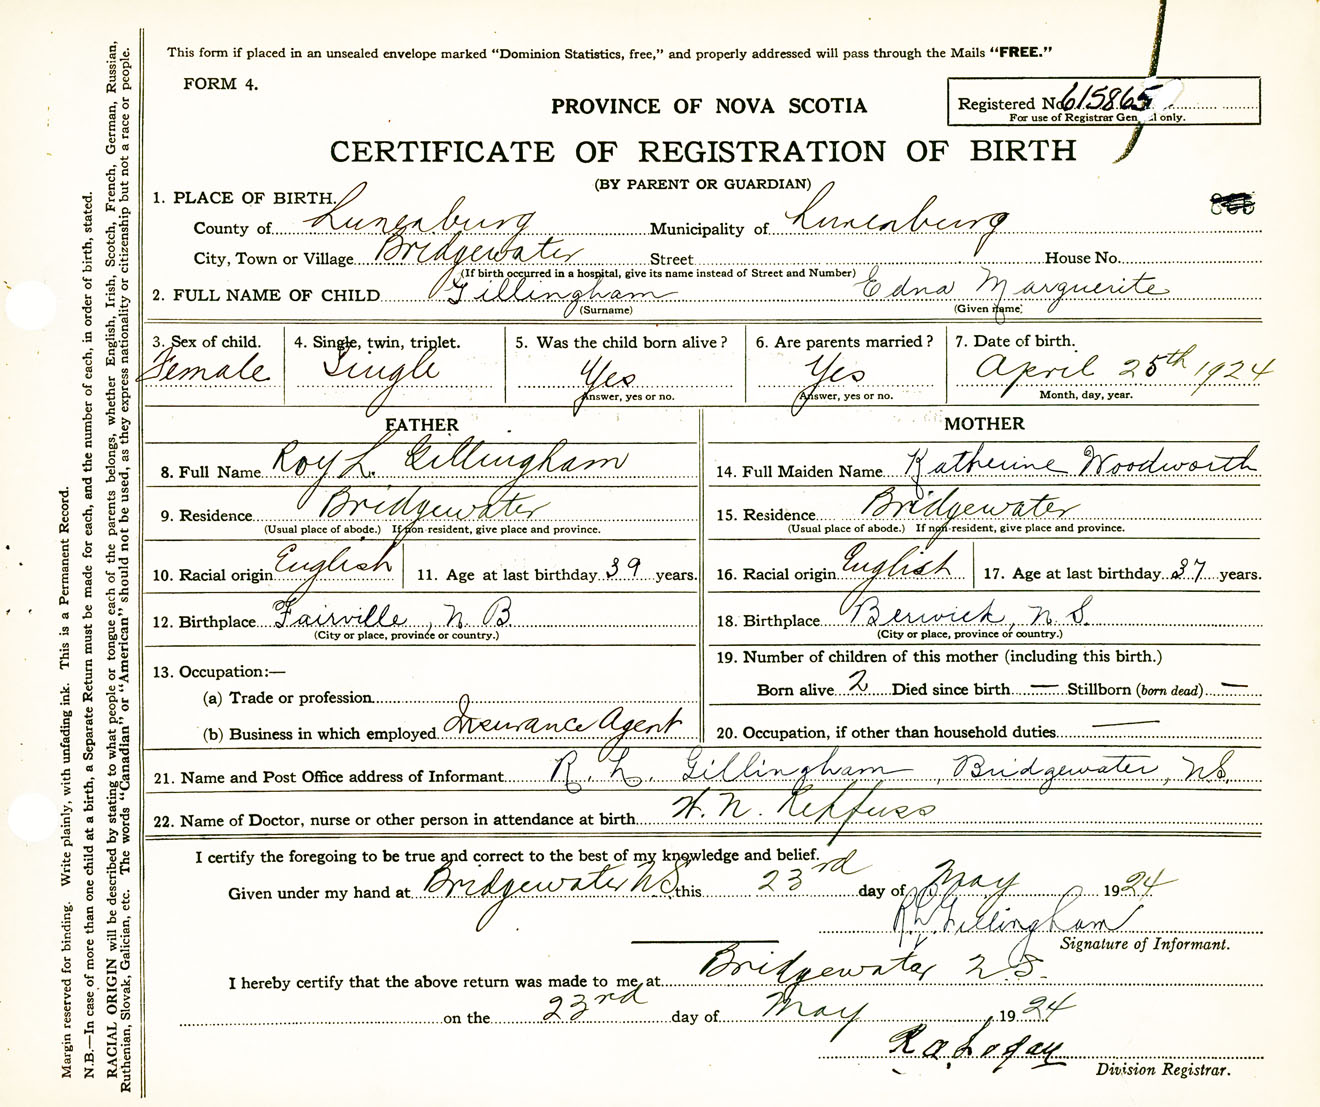 This form if placed in an unsealed envelope marked "Dominion Statistics, free," and properly addressed will pass through the Mails "FREE."
FORM 4.
PROVINCE OF NOVA SCOTIA
Registered No. 615865
For use of Registrar General only.
CERTIFICATE OF REGISTRATION OF BIRTH
(BY PARENT OR GUARDIAN)
1. PLACE OF BIRTH.
County of Lunenburg Municipality of Lunenburg
City, Town or Village Bridgewater Street House No.
(If birth occurred in a hospital, give its name instead of Street and Number)
2. FULL NAME OF CHILD Gillingham Edna Marguerite
(Surname) (Given name)
3. Sex of child. 4. Single, twin, triplet. 5. Was the child born alive? 6. Are parents married? 7. Date of birth.
Female Single Yes Yes April 25th 1924
Answer, yes or no. Answer, yes or no. Month, day, year.
FATHER
8. Full Name Roy L. Gillingham
9. Residence Bridgewater
(Usual place of abode.) If non-resident, give place and province.
10. Racial origin English 11. Age at last birthday 39 years.
12. Birthplace Fairville, N. B.
(City or place, province or country.)
13. Occupation:—
(a) Trade or profession
(b) Business in which employed Insurance Agent
MOTHER
14. Full Maiden Name Katherine Woodworth
15. Residence Bridgewater
(Usual place of abode.) If non-resident, give place and province.
16. Racial origin English 17. Age at last birthday 37 years.
18. Birthplace Berwick, N. S.
(City or place, province or country.)
19. Number of children of this mother (including this birth.)
Born alive 2 Died since birth — Stillborn (born dead) —
20. Occupation, if other than household duties —
21. Name and Post Office address of Informant R. L. Gillingham, Bridgewater, N.S.
22. Name of Doctor, nurse or other person in attendance at birth W. N. Rehfuss
I certify the foregoing to be true and correct to the best of my knowledge and belief.
Given under my hand at Bridgewater N.S. this 23rd day of May 1924
R L Gillingham
Signature of Informant.
I hereby certify that the above return was made to me at Bridgewater N.S.
on the 23rd day of May, 1924
R. A. Logan
Division Registrar.
Margin reserved for binding. Write plainly, with unfading ink. This is a Permanent Record.
N.B.—In case of more than one child at a birth, a Separate Return must be made for each, and the number of each, in order of birth, stated.
RACIAL ORIGIN will be described by stating to what people or tongue each of the parents belongs, whether English, Irish, Scotch, French, German, Russian,
Ruthenian, Slovak, Galician, etc. The words "Canadian" or "American" should not be used, as they express nationality or citizenship but not a race or people.